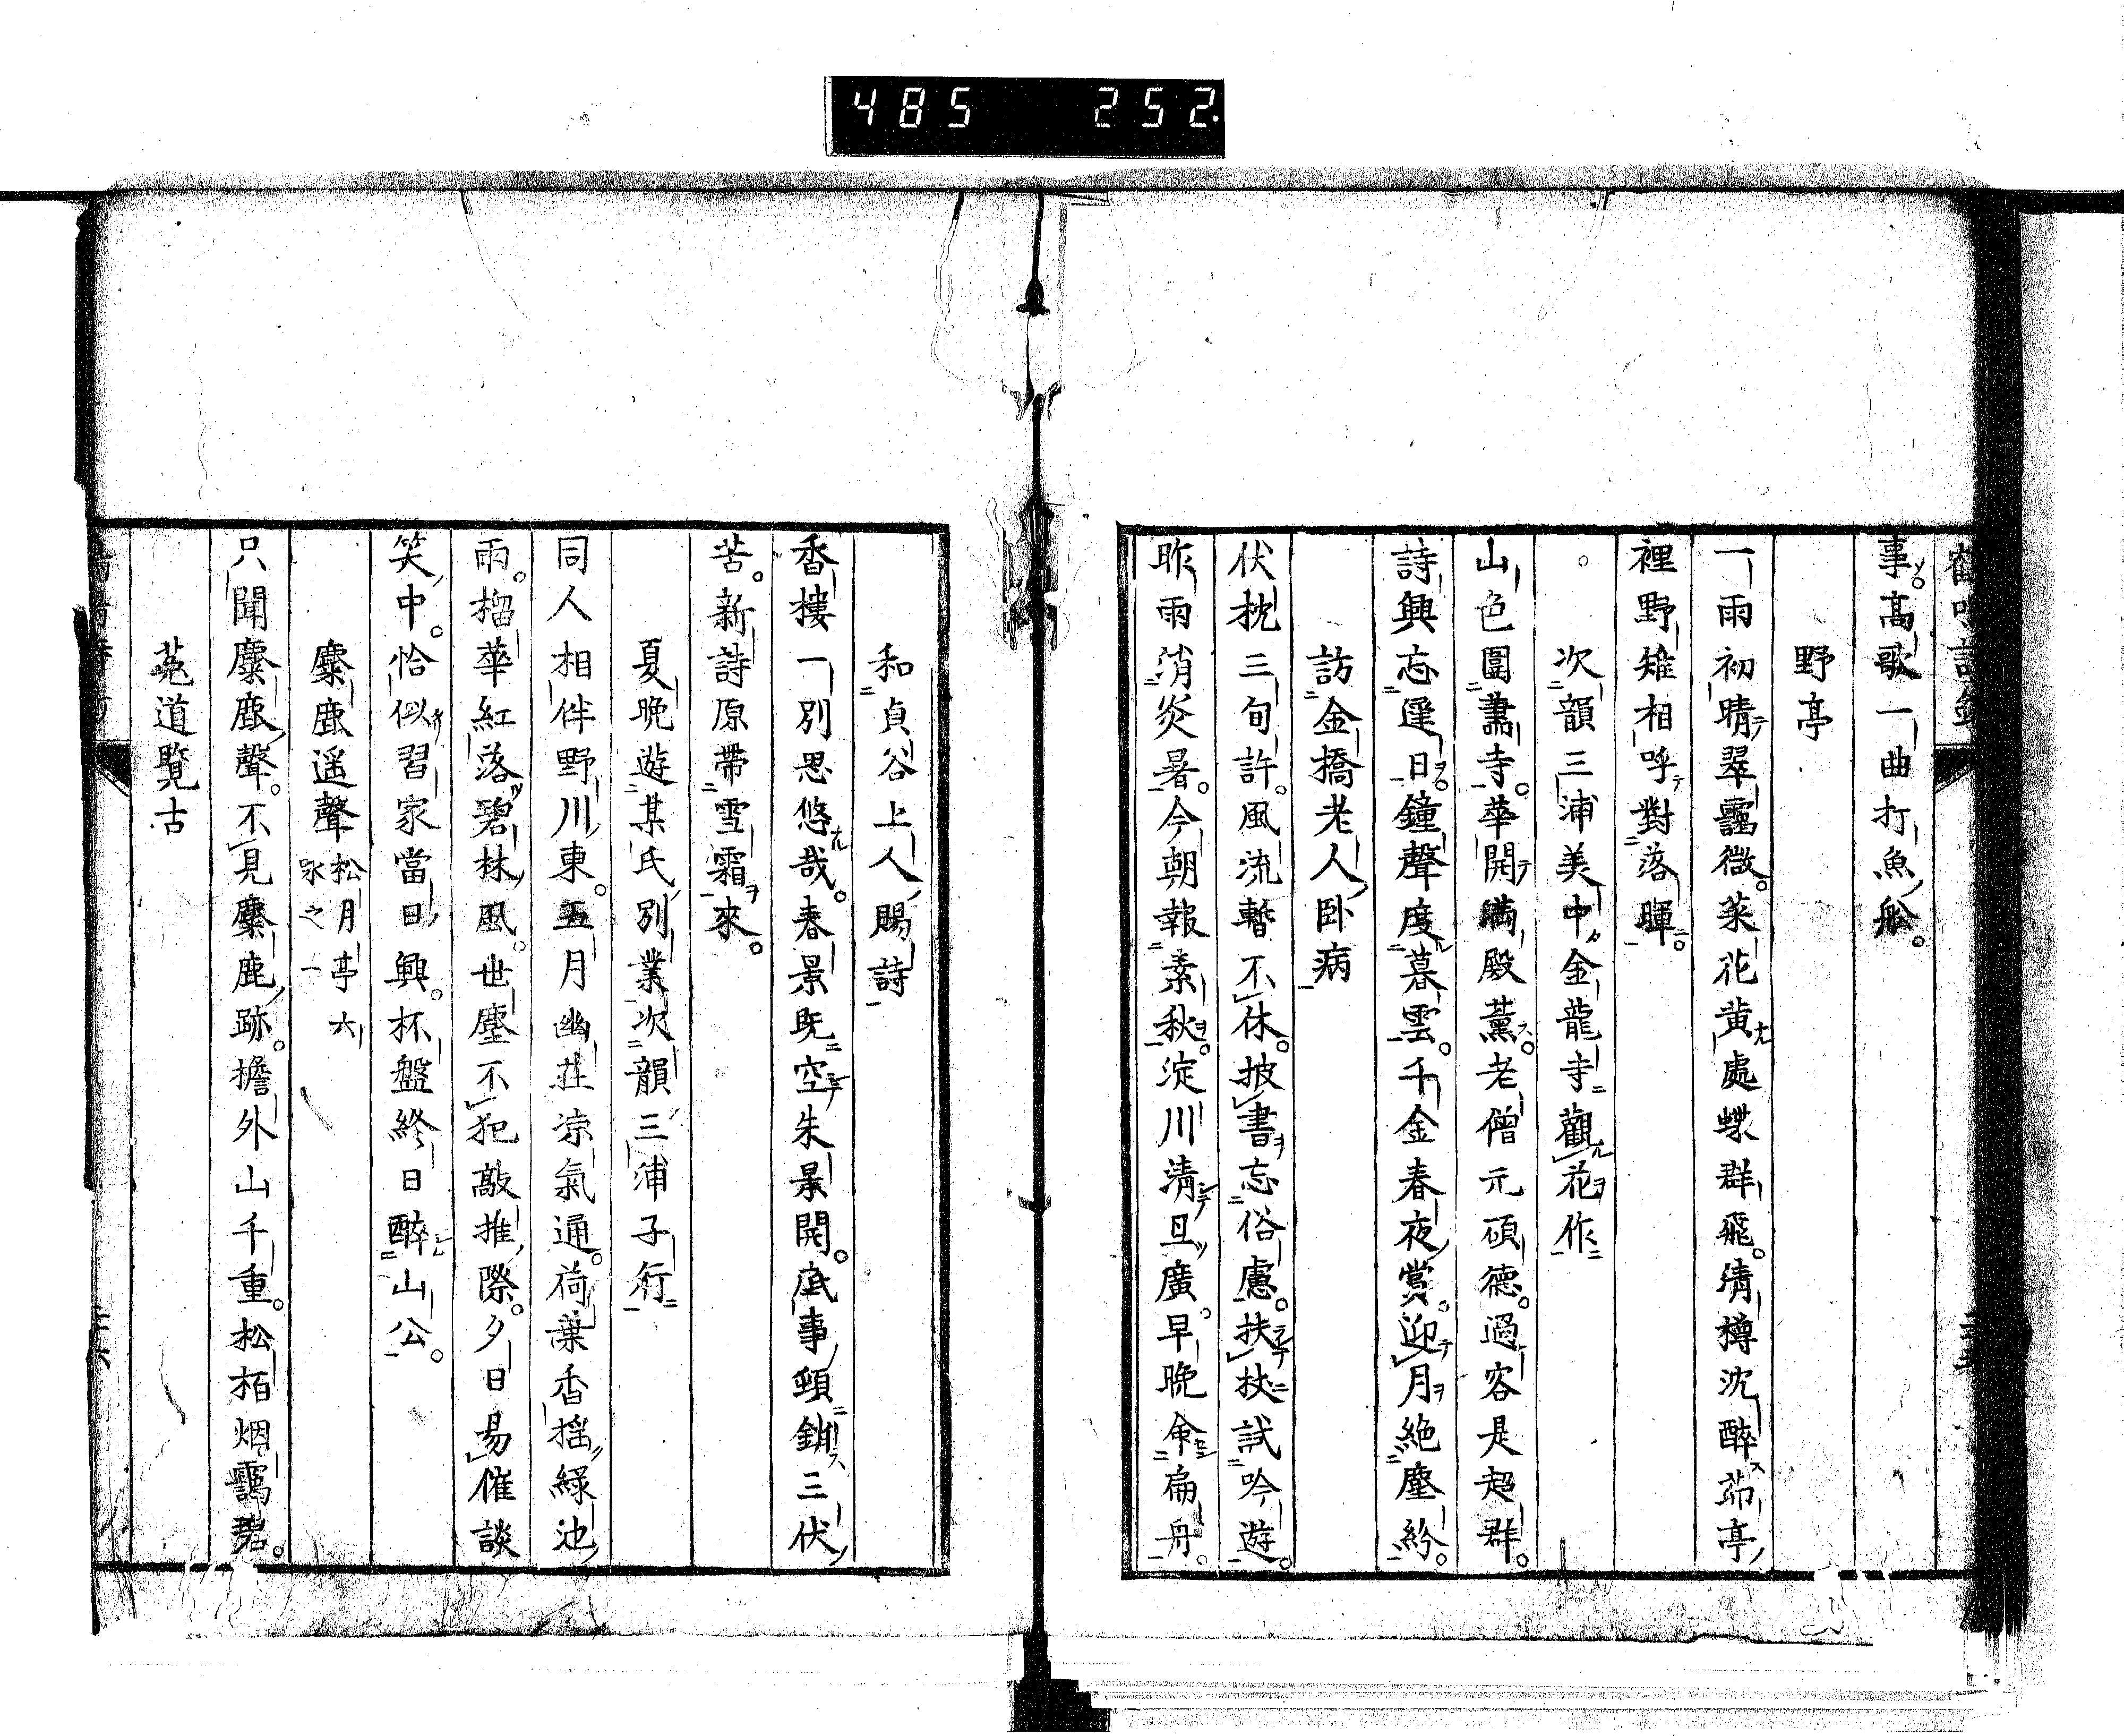 485 252.
事。高歌一曲打魚船。
野亭
一雨初晴翠靄微。菜花黃處蝶群飛。清樽沈醉茆亭
裡野雉相呼對落暉。
次韻三浦美中金龍寺觀花作
山色圍蕭寺。華開滿殿薰。老僧元碩德。過客是超群。
詩興忘遲日。鐘聲度暮雲。千金春夜賞。迎月絶塵紛。
訪金橋老人卧病
伏枕三旬許。風流暫不休。披書忘俗慮。扶杖試吟遊。
昨雨消炎暑。今朝報素秋。淀川清且廣。早晚命扁舟。
和貞谷上人賜詩
香樓一別思悠哉。春景既空朱景開。底事頸銷三伏
苦。新詩原帶雪霜來。
夏晚遊某氏別業次韻三浦子行
同人相伴野川東。五月幽莊涼氣通。荷葉香搖綠池
雨。榴華紅落碧林風。世塵不犯敲推際。夕日易催談
笑中。恰似習家當日興。杯盤終日醉山公。
麋鹿遥聲 松月亭六
詠之一
只聞麋鹿聲。不見麋鹿跡。擔外山千重。松栢烟靄碧。
菟道覽古